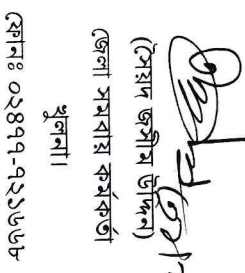 (সৈয়দ জসীম উদ্দিন)
জেলা সমবায় কর্মকর্তা
খুলনা।
ফোনঃ ০২৪৭৭-৭২১৬৬৮